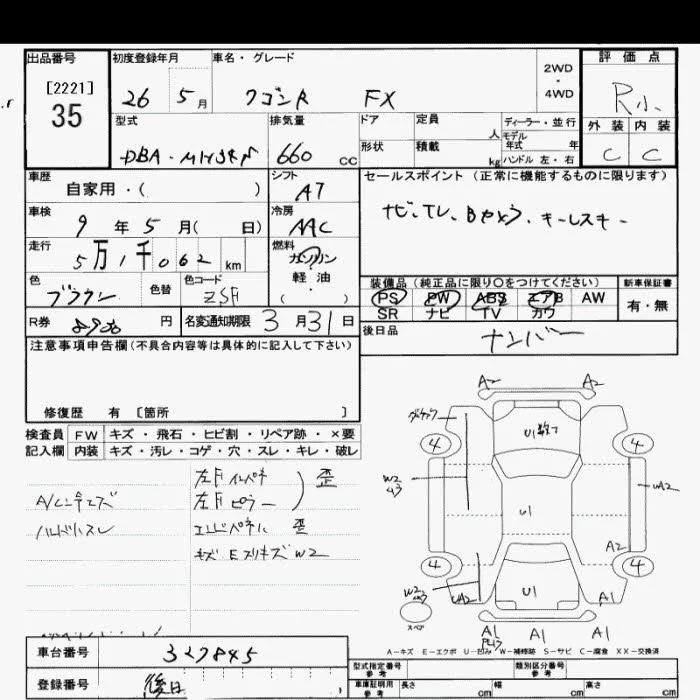 出品番号
[2221]
35
初度登録年月
26 5月
車名・グレード
ワゴンR FX
2WD
・
4WD
評価点
R小
外装 内装
C C
型式
DBA・MH34S
排気量
660 CC
ドア
定員 人
形状
積載 kg
ディーラー・並行
モデル
年式 年
ハンドル 左・右
車歴
自家用・( )
シフト
AT
車検
9年5月( 日)
冷房
AAC
走行
5万1千062km
燃料
ガソリン
軽・油
( )
色
ブラウン
色替
色コード
ZSF
R券
8920円
名変通知期限 3月31日
セールスポイント(正常に機能するものに限ります)
ナビ、TV、Bカメラ、キーレスキー
装備品(純正品に限り○をつけてください)
PS PW ABS エアB AW
SR ナビ TV カワ
新車保証書
有・無
後日品
ナンバー
注意事項申告欄(不具合内容等は具体的に記入して下さい)
修復歴 有 [箇所 ]
検査員 FW キズ・飛石・ヒビ割・リペア跡・×要
記入欄 内装 キズ・汚レ・コゲ・穴・スレ・キレ・破レ
ハンドルスレ
左Fインパネ
左Fピラー
歪
エンドパネル 歪
キズ Eスリキズ W2
A2 A2
4 4
U1数ヶ
W2
U3
U1
UA2
A2
4 4
W2
UA2
U1
A1
スペア
A1 A1 A1
A-キズ E-エクボ U-凹み W-補修跡 S-サビ C-腐食 XX-交換済
車台番号
327845
登録番号
後日
型式指定番号
参考
類別区分番号
参考
車庫証明用
参考
長さ cm
幅 cm
高さ cm